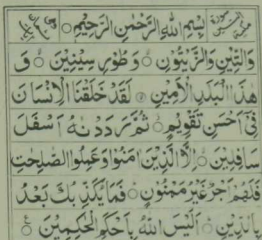 بِسْمِ اللهِ الرَّحْمٰنِ الرَّحِيْمِ
وَالتِّيْنِ وَالزَّيْتُوْنِ ۙ وَطُوْرِ سِيْنِيْنَ ۙ وَ
هٰذَا الْبَلَدِ الْاَمِيْنِ ۙ لَقَدْ خَلَقْنَا الْاِنْسَانَ
فِيْٓ اَحْسَنِ تَقْوِيْمٍ ۙ ثُمَّ رَدَدْنٰهُ اَسْفَلَ
سَافِلِيْنَ ۙ اِلَّا الَّذِيْنَ اٰمَنُوْا وَعَمِلُوا الصّٰلِحٰتِ
فَلَهُمْ اَجْرٌ غَيْرُ مَمْنُوْنٍ ۙ فَمَا يُكَذِّبُكَ بَعْدُ
بِالدِّيْنِ ۙ اَلَيْسَ اللهُ بِاَحْكَمِ الْحٰكِمِيْنَ